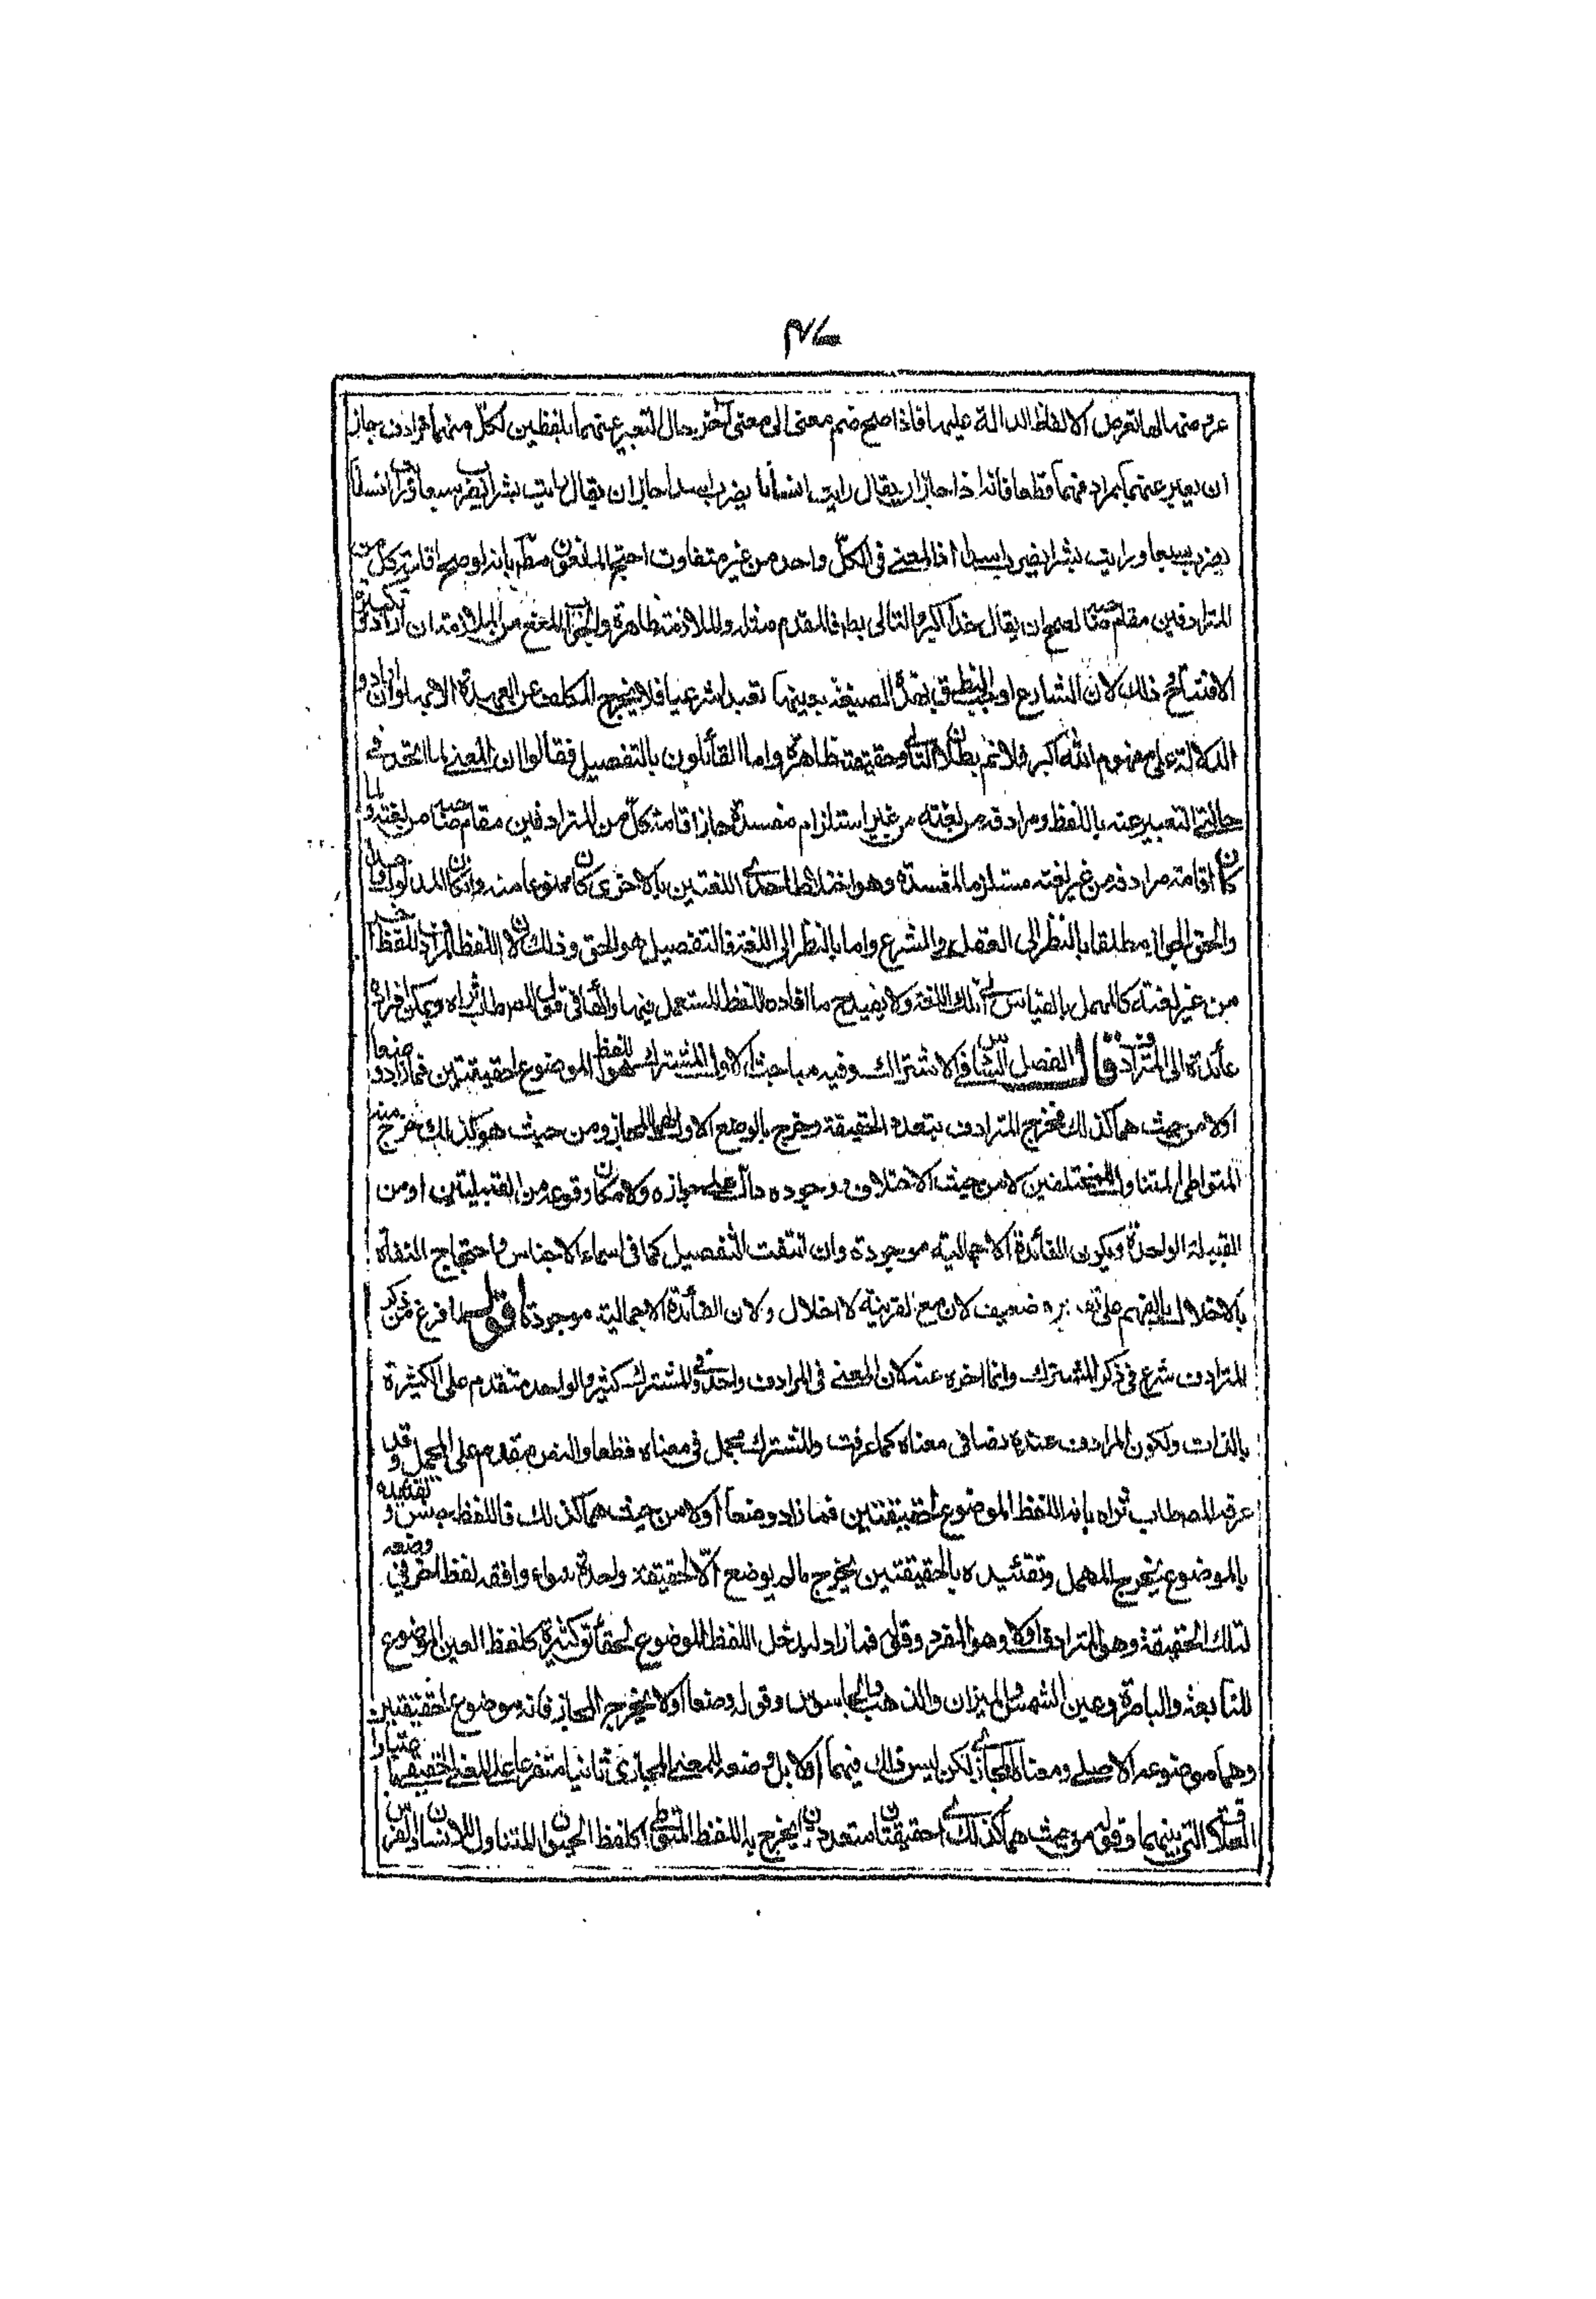 عن ضمها لها تعرض الالفاظ الدالة عليها فاذا صح ضم معنى الى معنى آخر حال التعبير عنهما بلفظين لكل منهما مرادف جاز
ان يعبر عنهما بمرادفهما قطعا فانه اذا جاز ان يقال رايت انسانا يضرب اسدا جاز ان يقال رايت بشرا يضرب سبعا ورايت انسانا
يضرب سبعا ورايت بشرا يضرب اسدا اذ المعنى فى الكل واحد من غير متفاوت احتج المانعون مطلقا بانه لو صح اقامة كل من
المترادفين مقام صاحبه لصح ان يقال خدا اكبر والتالى بط فالمقدم مثله والملازمة ظاهرة والجواب المنع من الملازمة ان اراد تكبيرة
الافتتاح ذلك لان الشارع اوجب النطق بهذه الصيغة بعينها تعبدا شرعيا فلا يخرج المكلف عن العهدة الا بها وان اراد
الدلالة على مفهوم الله اكبر فلا نم بطلان التالى وحقيقته ظاهرة واما القائلون بالتفصيل فقالوا ان المعنى لما اتحد فى
حالتى التعبير عنه باللفظ ومرادفه من لغته من غير استلزام مفسدة جاز اقامة كل من المترادفين مقام صاحبه من لغته ولما
كان اقامته مرادفه من غير لغته مستلزما لمفسدة وهو اختلاط احدى اللغتين بالاخرى كان ممنوعا منه وان كان المدلول واحدا
والحق الجواز مطلقا بالنظر الى العقل والشرع واما بالنظر الى اللغة فالتفصيل هو الحق وذلك لان اللفظ المرادف للفظ آخر
من غير لغته كالمهمل بالقياس الى تلك اللغة ولا يفيد ما افاده اللفظ المستعمل فيها والهاء فى قول المص طاب ثراه ويمكن افراده
عائدة الى المترادف قال الفصل الثانى فى الاشتراك وفيه مباحث الاول المشترك هو اللفظ الموضوع لحقيقتين فما زاد وضعا
اولا من حيث هما كذلك فخرج المترادف بتعدد الحقيقة وخرج بالوضع الاول المجاز ومن حيث هو كذلك خرج منه
المتواطى المتناول للمختلفين لا من حيث الاختلاف ووجوده دال على جوازه ولامكان وقوعه من القبيلتين او من
القبيلة الواحدة ويكون الفائدة الاجمالية موجودة وان انتفت التفصيل كما فى اسماء الاجناس واحتجاج النفاة
بالاخلال بالفهم على ضعيف لان مع القرينة لا اخلال ولان الفائدة الاجمالية موجودة اقول لما فرغ من ذكر
المترادف شرع فى ذكر المشترك وانما اخره عنه لان المعنى فى المرادف واحد وفى المشترك كثير والواحد متقدم على الكثرة
بالذات ولكون المرادف عنده نصا فى معناه كما عرفت والمشترك مجمل فى معناه قطعا والنص متقدم على المجمل وقد
عرفه المص طاب ثراه بانه اللفظ الموضوع لحقيقتين فما زاد وضعا اولا من حيث هما كذلك فاللفظ جنس وتقييده
بالموضوع يخرج المهمل وتقييده بالحقيقتين يخرج ما لم يوضع الا لحقيقة واحدة سواء وافقه لفظ آخر فى وضعه
لتلك الحقيقة وهو المترادف او لا وهو المفرد وقوله فما زاد ليدخل اللفظ الموضوع لحقائق كثيرة كلفظ العين الموضوع
للنابعة والباصرة وعين الشمس والميزان والذهب والجاسوس وقوله وضعا اولا يخرج المجاز فانه موضوع لحقيقتين
وهما موضوعه الاصلى ومعناه المجازى لكن ليس ذلك فيهما اولا بل وضعه للمعنى المجازى ثانيا متفرعا على المعنى الحقيقى باعتبار
العلاقة التى بينهما وقوله من حيث هما كذلك اى حقيقتان متعددتان يخرج به اللفظ المتواطى كلفظ الحيوان المتناول للانسان والفرس